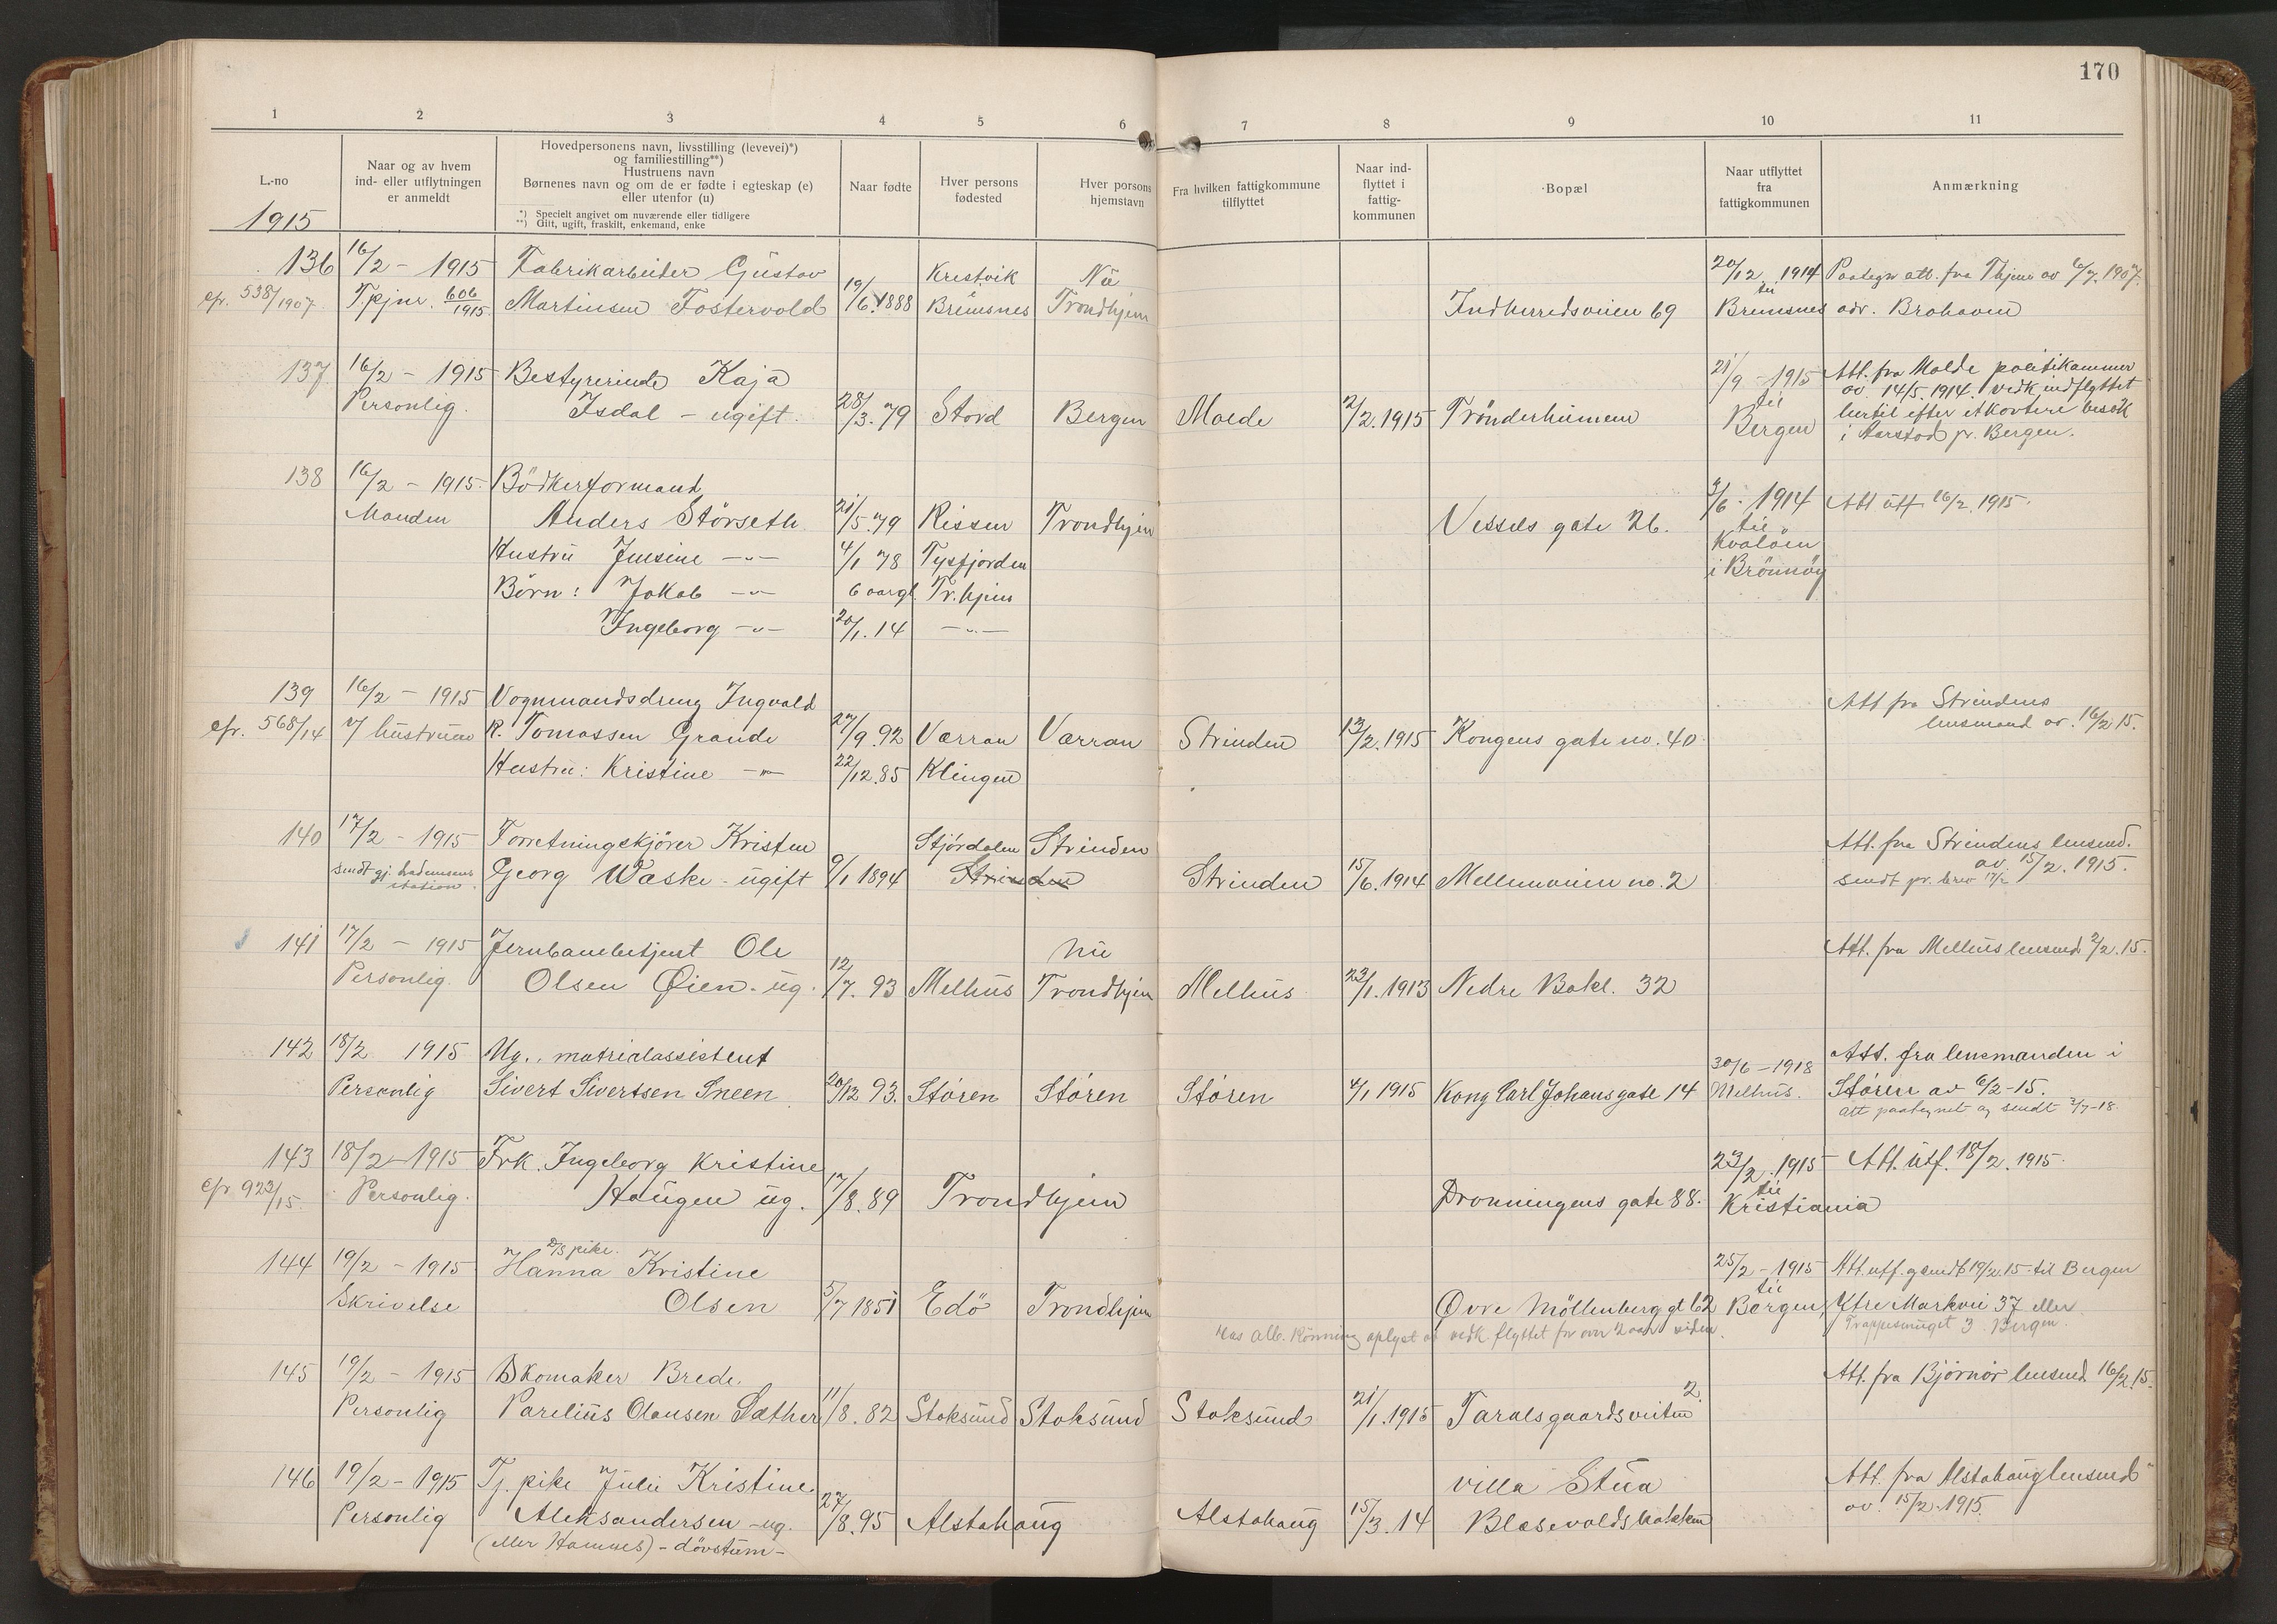 170
1 2 3 4 5 6 7 8 9 10 11
L.-no
1915
Naar og av hvem
ind- eller utflytningen
er anmeldt
Hovedpersonens navn, livsstilling (levevei)*)
og familiestilling**)
Hustruens navn
Børnenes navn og om de er fødte i egteskap (e)
eller utenfor (u)
*) Specielt angivet om nuværende eller tidligere
**) Gift, ugift, fraskilt, enkemand, enke
Naar fødte
Hver persons
fødested
Hver persons
hjemstavn
Fra hvilken fattigkommune
tilflyttet
Naar ind-
flyttet i
fattig-
kommunen
Bopæl
Naar utflyttet
fra
fattigkommunen
Anmærkning
136 16/2 - 1915 Fabrikarbeider Gustav Krestvik Nu 20/12 1914 Paategn. att. fra Thjem av 6/7. 1907.
cfr. 538/1907. T.pjnr. 606/1915 Martinsen Fostervold 19/6 1888 Bremsnes Trondhjem Indherredsveien 69 til Bremsnes adr. Brohaven
137 16/2 - 1915 Bestyrerinde Kaja 21/9 - 1915 Att. fra Molde politikammer
av 14/5. 1914. Vedk. indflyttet
Personlig. Isdal - ugift. 28/3. 79 Stord Bergen Molde 2/2. 1915 Trønderheimen til Bergen hertil efter et kortere besøk
i Aarstad pr. Bergen.
138 16/2 - 1915. Bödkerformand
Manden Anders Störseth 21/5. 79 Rissen Trondhjem Vessels gate 26. 3/6 - 1914 Att utf. 16/2. 1915.
til
Hustru Jensine -"- 4/1 78 Tysfjorden Kvalöen
i Brönnöy
Börn: Jakob -"- 6 aargl. Tr.hjem
Ingeborg -"- 20/1. 14 -"-
139 16/2 - 1915 Vognmandsdreng Ingvald Att fra Strindens
lensmand av. 16/2 15.
cfr. 568/14 v/ hustruen R. Tomassen Grande 27/9. 92 Varran Varran Strinden 13/2. 1915 Kongens gate no. 40
Hustru: Kristine -"- 22/12. 85 Klingen
140 17/2 - 1915 Forretningskjörer Kristen Stjördalen Strinden Att. fra Strindens lensmd.
av 15/2. 1915.
Georg Waske - ugift 9/1 1894 Strinden Strinden 15/6. 1914 Mellemveien no. 2 sendt pr. brev 17/2
141 17/2 - 1915 Jernbanebetjent Ole nu Att. fra Melhus lensmd 2/2. 15.
Personlig. Olsen Øien - ug. 12/7. 93 Melhus Trondhjem Melhus 23/1. 1913 Nedre Bakl. 32
142 18/2 1915 Ug. matrialassistent 30/6 - 1918 Att. fra lensmanden i
Personlig Sivert Sivertsen Sneen 20/12 93. Stören Stören Stören 4/1 1915 Kong Carl Johans gate 14 Melhus. Stören av 6/2 - 15.
att paategnet og sendt 2/7 - 18.
143 18/2 - 1915 Frk. Ingeborg Kristine 23/2. 1915 Att. utf. 18/2. 1915.
cfr. 923/15 Personlig. Haugen ug. 17/8. 89 Trondhjem Dronningens gate 88. til Kristiania
144 19/2 - 1915 pike. Hanna Kristine 25/2 - 1915 Att. utf. og sendt 19/2. 15. til Bergen
Skrivelse Olsen 5/7 1851 Edö Trondhjem Øvre Möllenberg gt 62 til Bergen, Ytre Markvei 37 eller
Hos Alb. Rönning oplyst at vedk. flyttet for over 2 aar siden. Trappesmuget 3 Bergen.
145 19/2 - 1915 Skomaker Brede Att. fra Björnör lensmd. 16/2. 15.
Personlig Parelius Olausen Sæther 11/8. 82 Stoksund Stoksund Stoksund 21/1. 1915 Taralsgaardsveiten 2.
146 19/2 - 1915 Tj. pike Julie Kristine villa Stua Att. fra Alstahaug lensmd
Personlig Aleksandersen - ug. 27/8. 95 Alstahaug Alstahaug 15/3. 14 Blæsevoldsbakken av 15/2 - 1915.
(eller Hamnes) - dövstum -